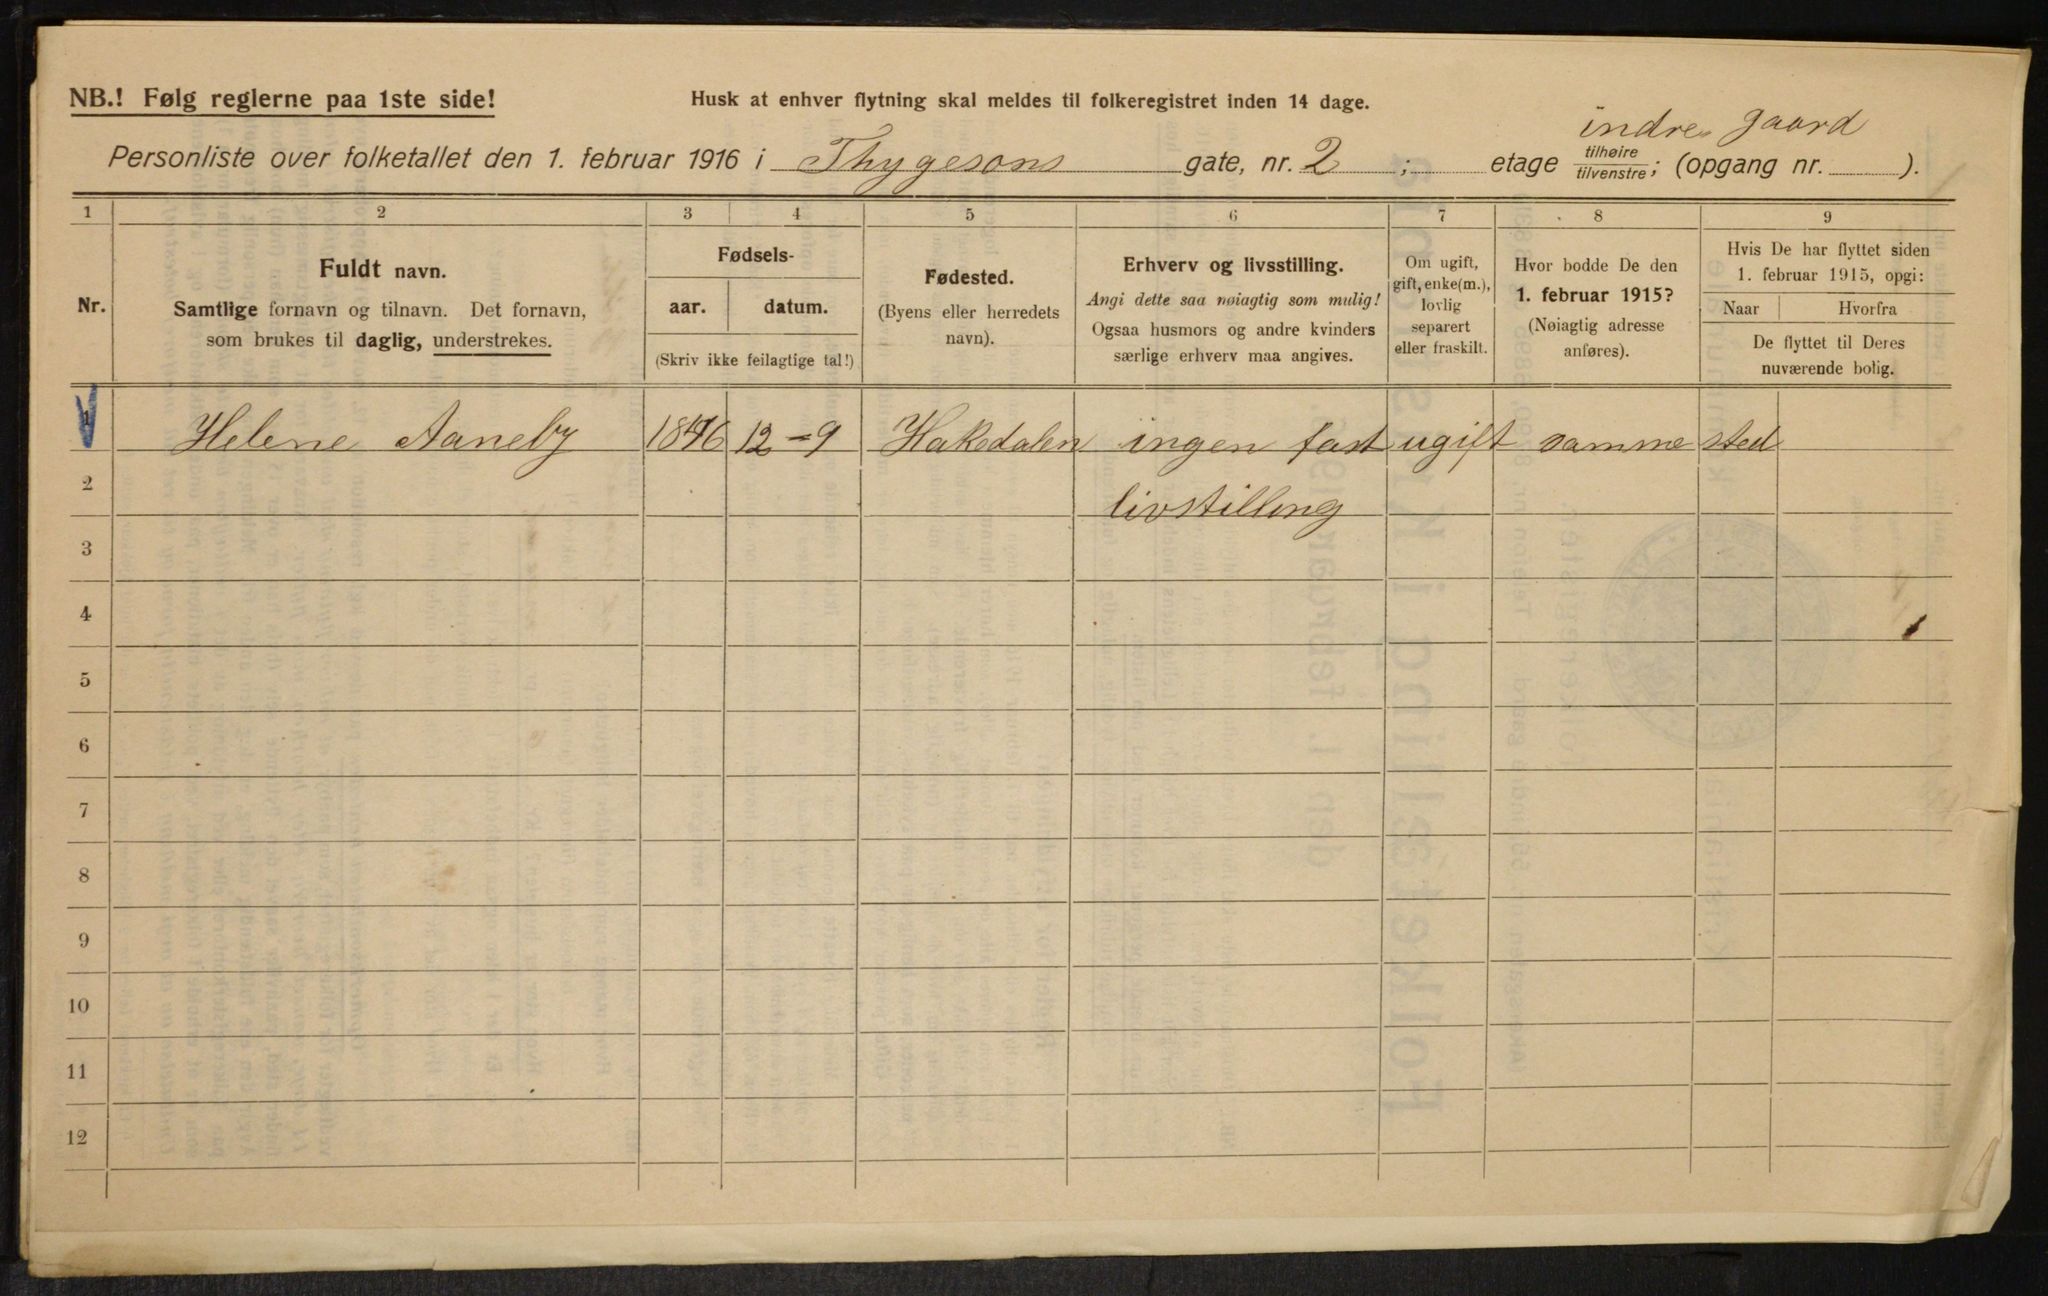 NB.! Følg reglerne paa 1ste side!
Husk at enhver flytning skal meldes til folkeregistret inden 14 dage.
indre gaard
Personliste over folketallet den 1. februar 1916 i Thygesons gate, nr. 2 ; etage tilhøire/tilvenstre; (opgang nr. ).
1 2 3 4 5 6 7 8 9
Nr.
Fuldt navn.
Samtlige fornavn og tilnavn. Det fornavn,
som brukes til daglig, understrekes.
Fødsels-
aar. datum.
(Skriv ikke feilagtige tal!)
Fødested.
(Byens eller herredets
navn).
Erhverv og livsstilling.
Angi dette saa nøiagtig som mulig!
Ogsaa husmors og andre kvinders
særlige erhverv maa angives.
Om ugift,
gift, enke(m.),
lovlig
separert
eller fraskilt.
Hvor bodde De den
1. februar 1915?
(Nøiagtig adresse
anføres).
Hvis De har flyttet siden
1. februar 1915, opgi:
Naar Hvorfra
De flyttet til Deres
nuværende bolig.
1 Helene Aaneby 1846 12-9 Hakedalen ingen fast ugift samme sted
2 livstilling
3
4
5
6
7
8
9
10
11
12